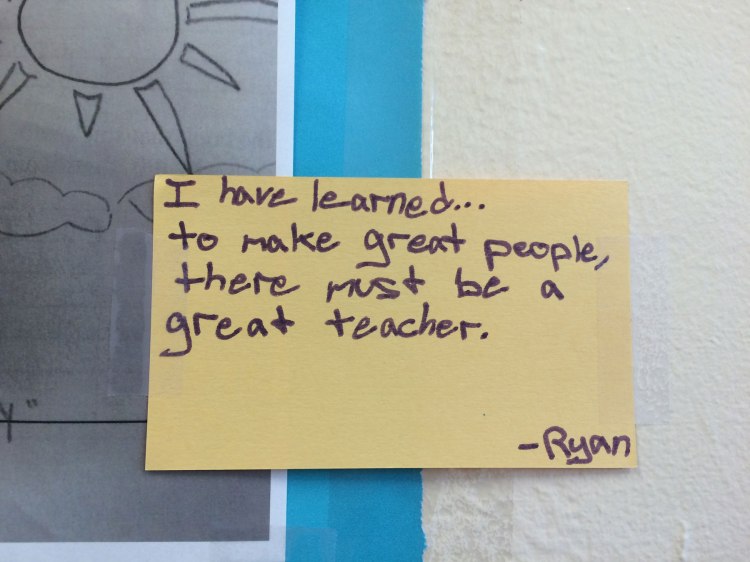 I have learned...
to make great people,
there must be a
great teacher.
-Ryan
y"